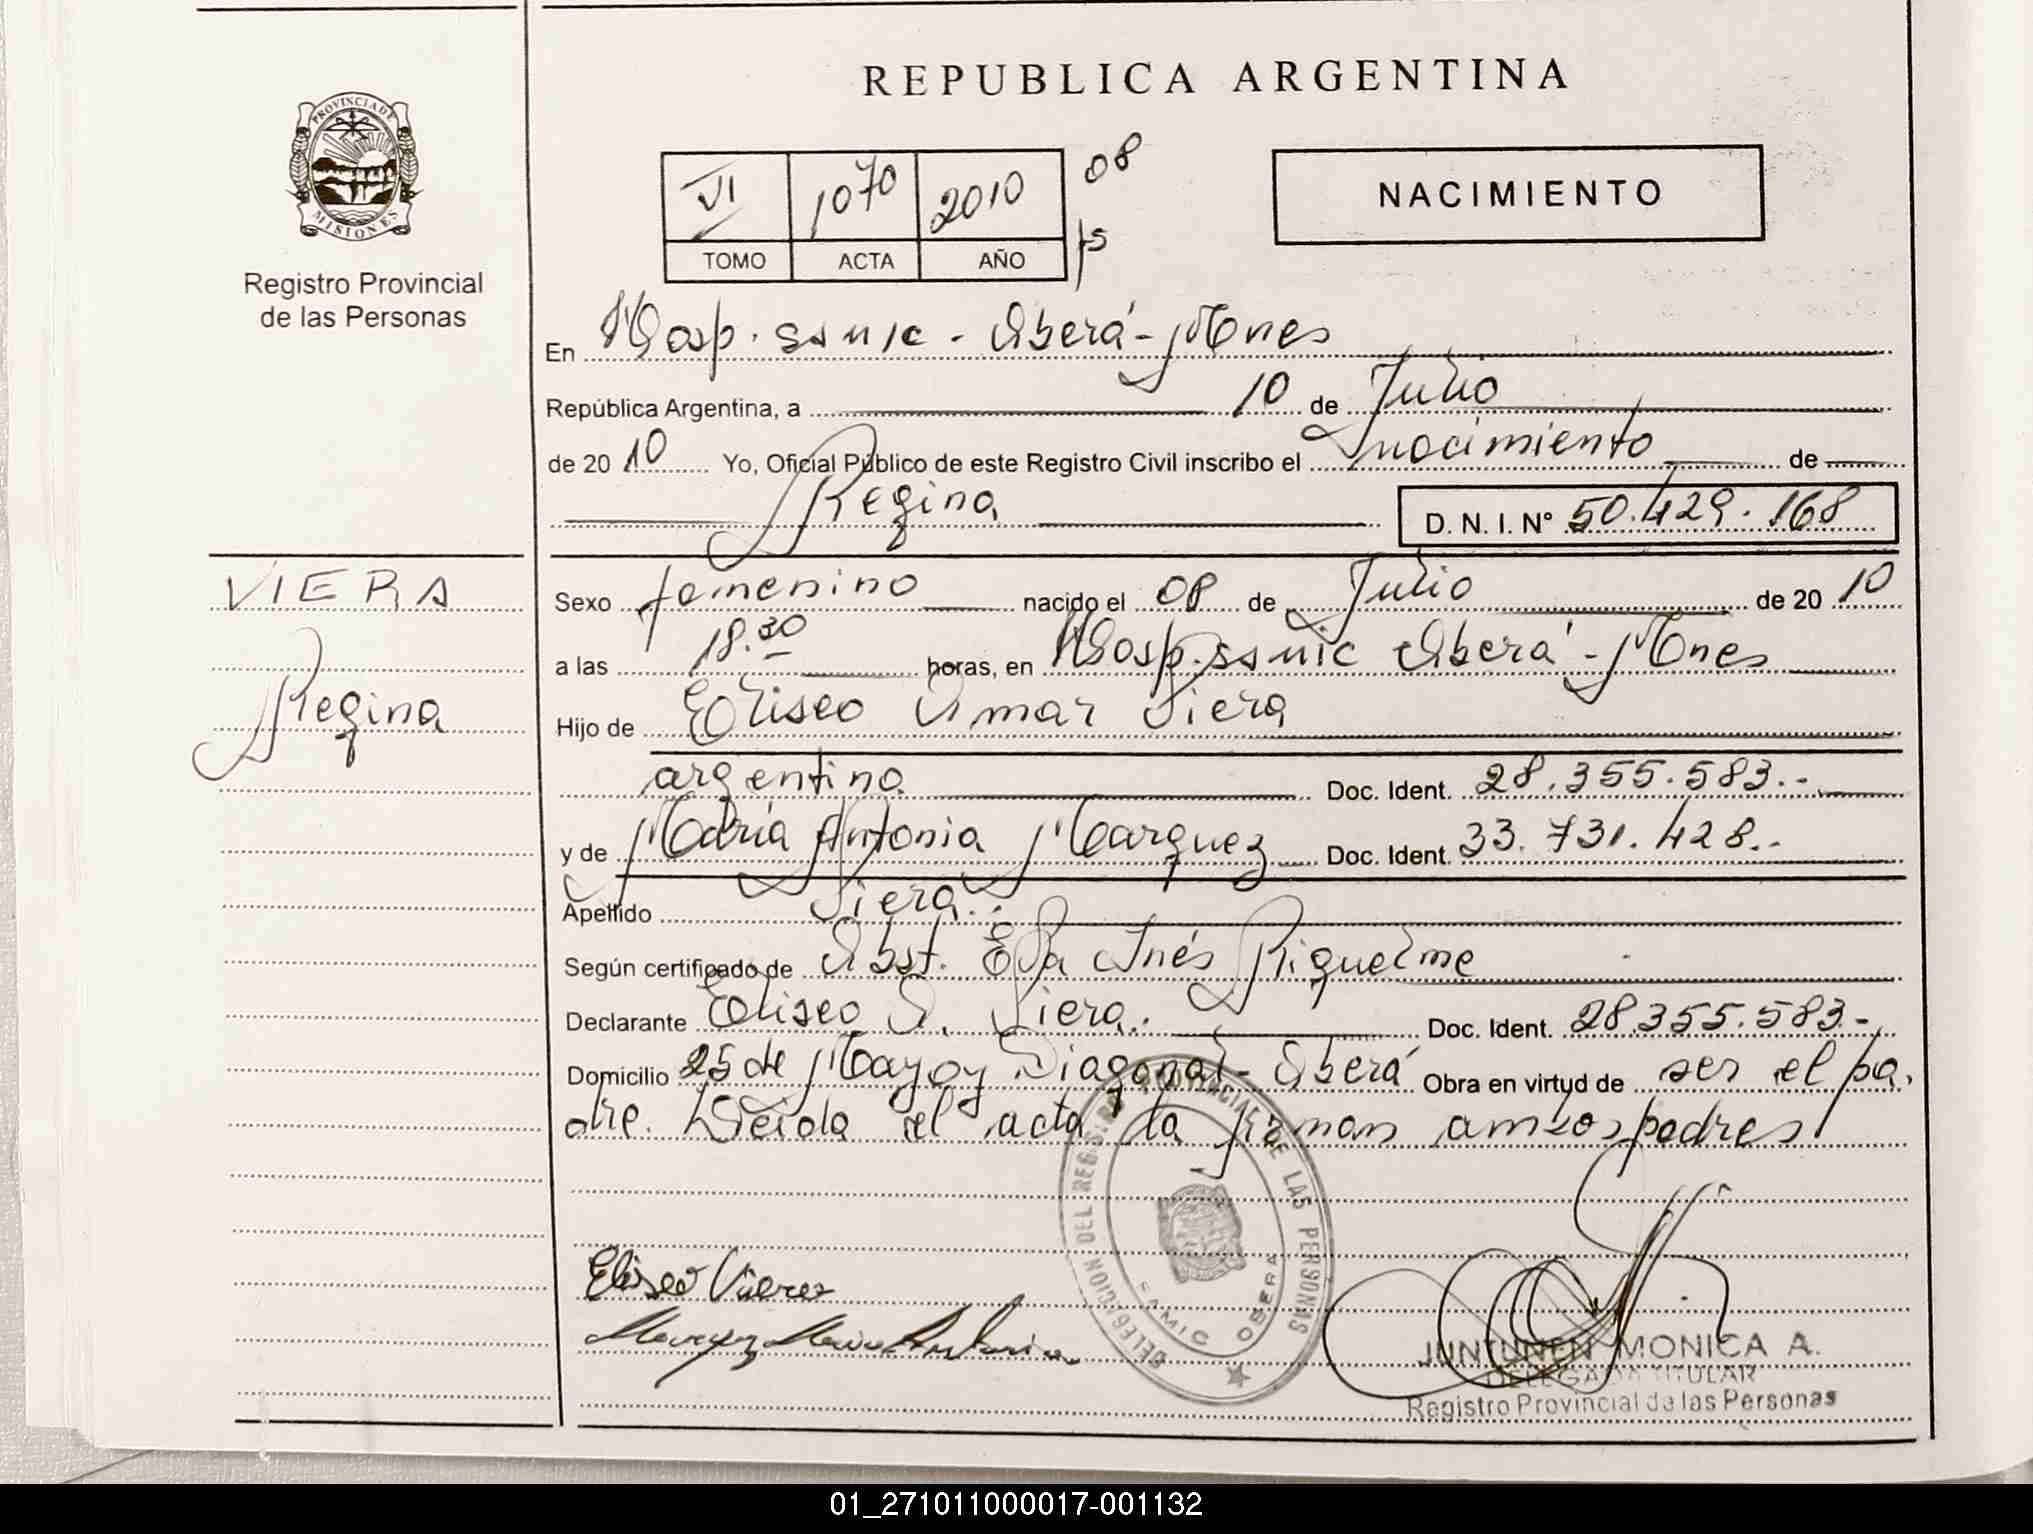 REPUBLICA ARGENTINA
PROVINCIA DE MISIONES
Registro Provincial
de las Personas
VI 1070 2010 08
TOMO ACTA AÑO 15
NACIMIENTO
En Hosp. ssmic - Oberá - Mnes
República Argentina, a 10 de Julio
de 2010 Yo, Oficial Público de este Registro Civil inscribo el nacimiento de
Regina D. N. I. N° 50.429.168
VIERA
Regina
Sexo femenino nacido el 08 de Julio de 2010
a las 18.30 horas, en Hosp. ssmic Oberá - Mnes
Hijo de Eliseo Omar Viera
argentino Doc. Ident. 28.355.583.-
y de María Antonia Marquez Doc. Ident. 33.731.428..
Apellido Viera..
Según certificado de Obst. Elsa Inés Riquelme
Declarante Eliseo O. Viera. Doc. Ident. 28.355.583.-
Domicilio 25 de Mayo y Diagonal - Oberá Obra en virtud de ser el pa.
dre. Leida el acta la firman ambos padres
DELEGACION DEL REGISTRO PROVINCIAL DE LAS PERSONAS
SAMIC OBERA
Eliseo Viera
Marquez Maria Antonia
JUNTUNEN MONICA A.
DELEGADA TITULAR
Registro Provincial de las Personas
01_271011000017-001132